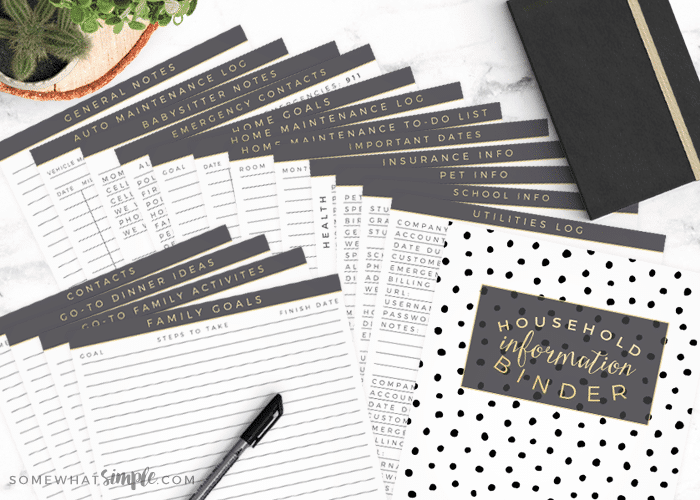 GENERAL NOTES
AUTO MAINTENANCE LOG
VEHICLE
DATE
BABYSITTER NOTES
MOM
CELL
WE
PHO
WE
EMERGENCY CONTACTS
911
HOME GOALS
GOAL
HOME MAINTENANCE LOG
DATE
HOME MAINTENANCE TO-DO LIST
ROOM
IMPORTANT DATES
MONT
INSURANCE INFO
HEALTH
PET INFO
PET
SCHOOL INFO
UTILITIES LOG
COMPANY
ACCOUN
DATE DU
CUSTOME
EMERGE
BILLING
URL:
USERNA
PASSWO
NOTES:
COMPAN
ACCOU
DATE D
CUSTO
EMERG
BILLIN
URL:
CONTACTS
GO-TO DINNER IDEAS
GO-TO FAMILY ACTIVITES
FAMILY GOALS
GOAL
STEPS TO TAKE
FINISH DATE
HOUSEHOLD
information
BINDER
SOMEWHAT simple .COM